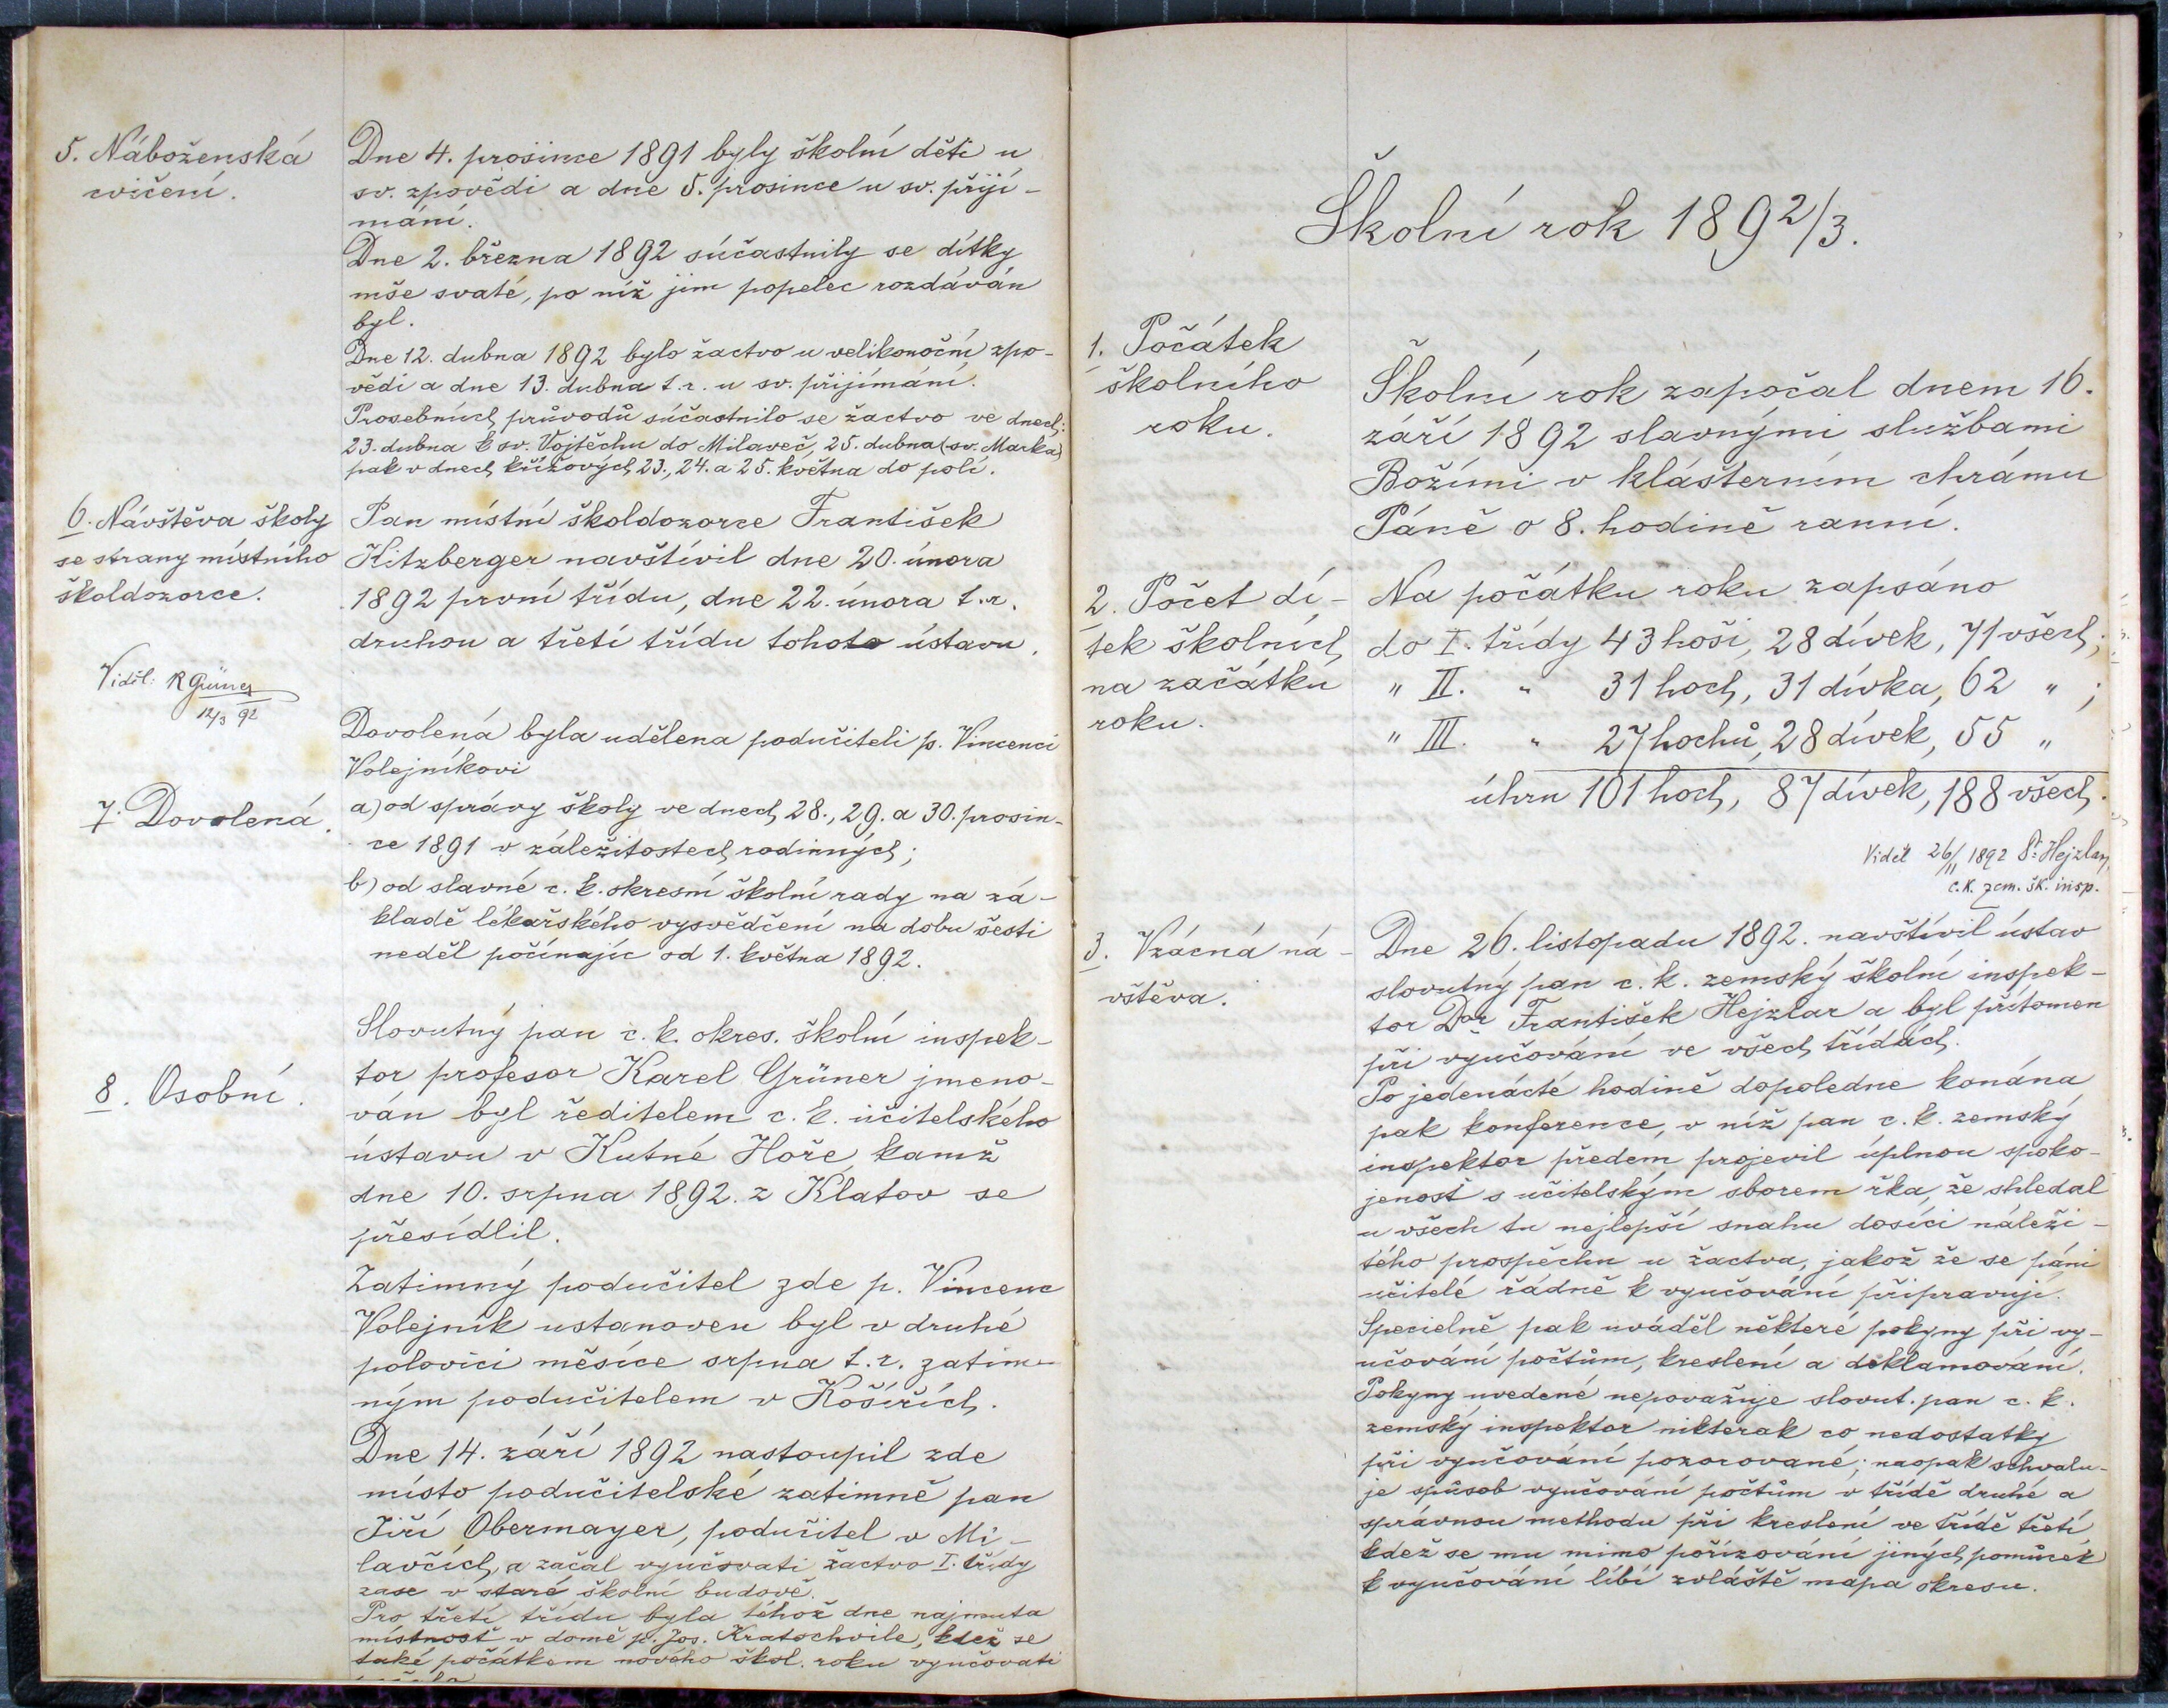 5. Náboženská
cvičení.
Dne 4. prosince 1891 byly školní děti u
sv. zpovědi a dne 5. prosince u sv. přijí-
mání.
Dne 2. března 1892 súčastnily se dítky
mše svaté, po níž jim popelec rozdáván
byl.
Dne 12. dubna 1892 bylo žactvo u velikonoční zpo-
vědi a dne 13. dubna t.r. u sv. přijímání.
Prosebných průvodů súčastnilo se žactvo ve dnech:
23. dubna k sv. Vojtěchu do Milaveč, 25. dubna (sv. Marka)
pak v dnech křížových 23., 24. a 25. května do polí.
6. Návštěva školy
se strany místního
školdozorce.
Pan místní školdozorce František
Kitzberger navštívil dne 20. února
1892 první třídu, dne 22. února t.r.
druhou a třetí třídu tohoto ústavu.
Viděl: R Grüner
12/3 92
7. Dovolená.
Dovolená byla udělena podučiteli p. Vincenci
Volejníkovi
a) od správy školy ve dnech 28., 29. a 30. prosin-
ce 1891 v záležitostech rodinných;
b) od slavné c. k. okresní školní rady na zá-
kladě lékařského vysvědčení na dobu šesti
neděl počínajíc od 1. května 1892.
8. Osobní.
Slovutný pan c. k. okres. školní inspek-
tor profesor Karel Grüner jmeno-
ván byl ředitelem c. k. učitelského
ústavu v Kutné Hoře kamž
dne 10. srpna 1892. z Klatov se
přesídlil.
Zatimný podučitel zde p. Vincenc
Volejník ustanoven byl v druhé
polovici měsíce srpna t.r. zatim-
ným podučitelem v Košířích.
Dne 14. září 1892 nastoupil zde
místo podučitelské zatimně pan
Jiří Obermayer, podučitel v Mi-
lavčích, a začal vyučovati žactvo I. třídy
zase v staré školní budově.
Pro třetí třídu byla téhož dne najmuta
místnosť v domě p. Jos. Kratochvile, kdež se
také počátkem nového škol. roku vyučovati
Školní rok 1892/3.
1. Počátek
školního
roku.
Školní rok započal dnem 16.
září 1892 slavnými službami
Božími v klášterním chrámu
Páně o 8. hodině ranní.
2. Počet dí-
tek školních
na začátku
roku.
Na počátku roku zapsáno
do I. třídy 43 hoši, 28 dívek, 71 všech;
" II. " 31 hoch, 31 dívka, 62 " ;
" III. " 27 hochů, 28 dívek, 55 "
úhrn 101 hoch, 87 dívek, 188 všech.
Viděl 26/11 1892 Dr. Hejzlar,
c. k. zem. šk. insp.
3. Vzácná ná-
vštěva.
Dne 26. listopadu 1892. navštívil ústav
slovutný pan c. k. zemský školní inspek-
tor Dor František Hejzlar a byl přítomen
při vyučování ve všech třídách.
Po jedenácté hodině dopoledne konána
pak konference, v níž pan c. k. zemský
inspektor předem projevil úplnou spoko-
jenosť s učitelským sborem řka, že shledal
u všech tu nejlepší snahu dosíci náleži-
tého prospěchu u žactva, jakož že se páni
učitelé řádně k vyučování připravují.
Specielně pak uváděl některé pokyny při vy-
učování počtům, kreslení a deklamování.
Pokyny uvedené nepovažuje slovut. pan c. k.
zemský inspektor nikterak co nedostatky
při vyučování pozorované; naopak schvalu-
je způsob vyučování počtům v třídě druhé a
správnou methodu při kreslení ve třídě třetí
kdež se mu mimo pořizování jiných pomůcek
k vyučování líbí zvláště mapa okresu.